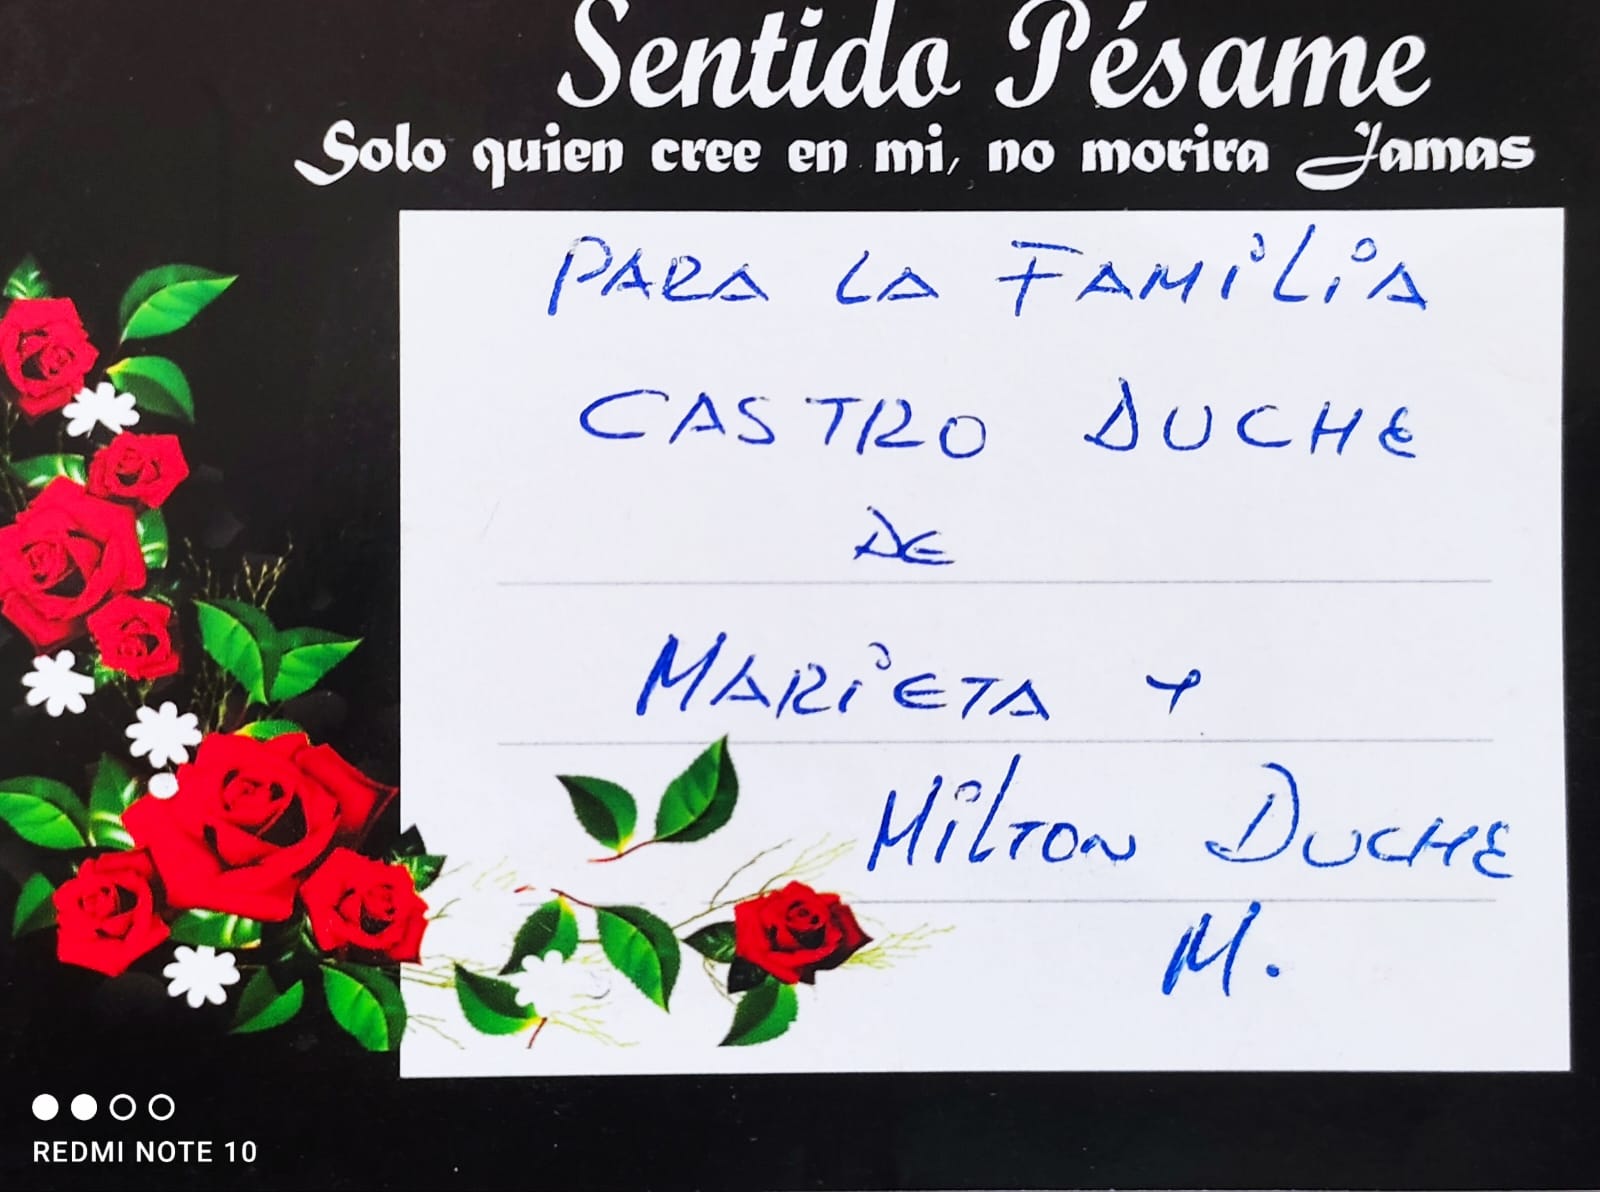 Sentido Pésame
Solo quien cree en mi, no morira Jamas
PARA LA FAMiLiA
CASTRO DUCHE
DE
MARiETA Y
MiLTON DUCHE
M.
REDMI NOTE 10